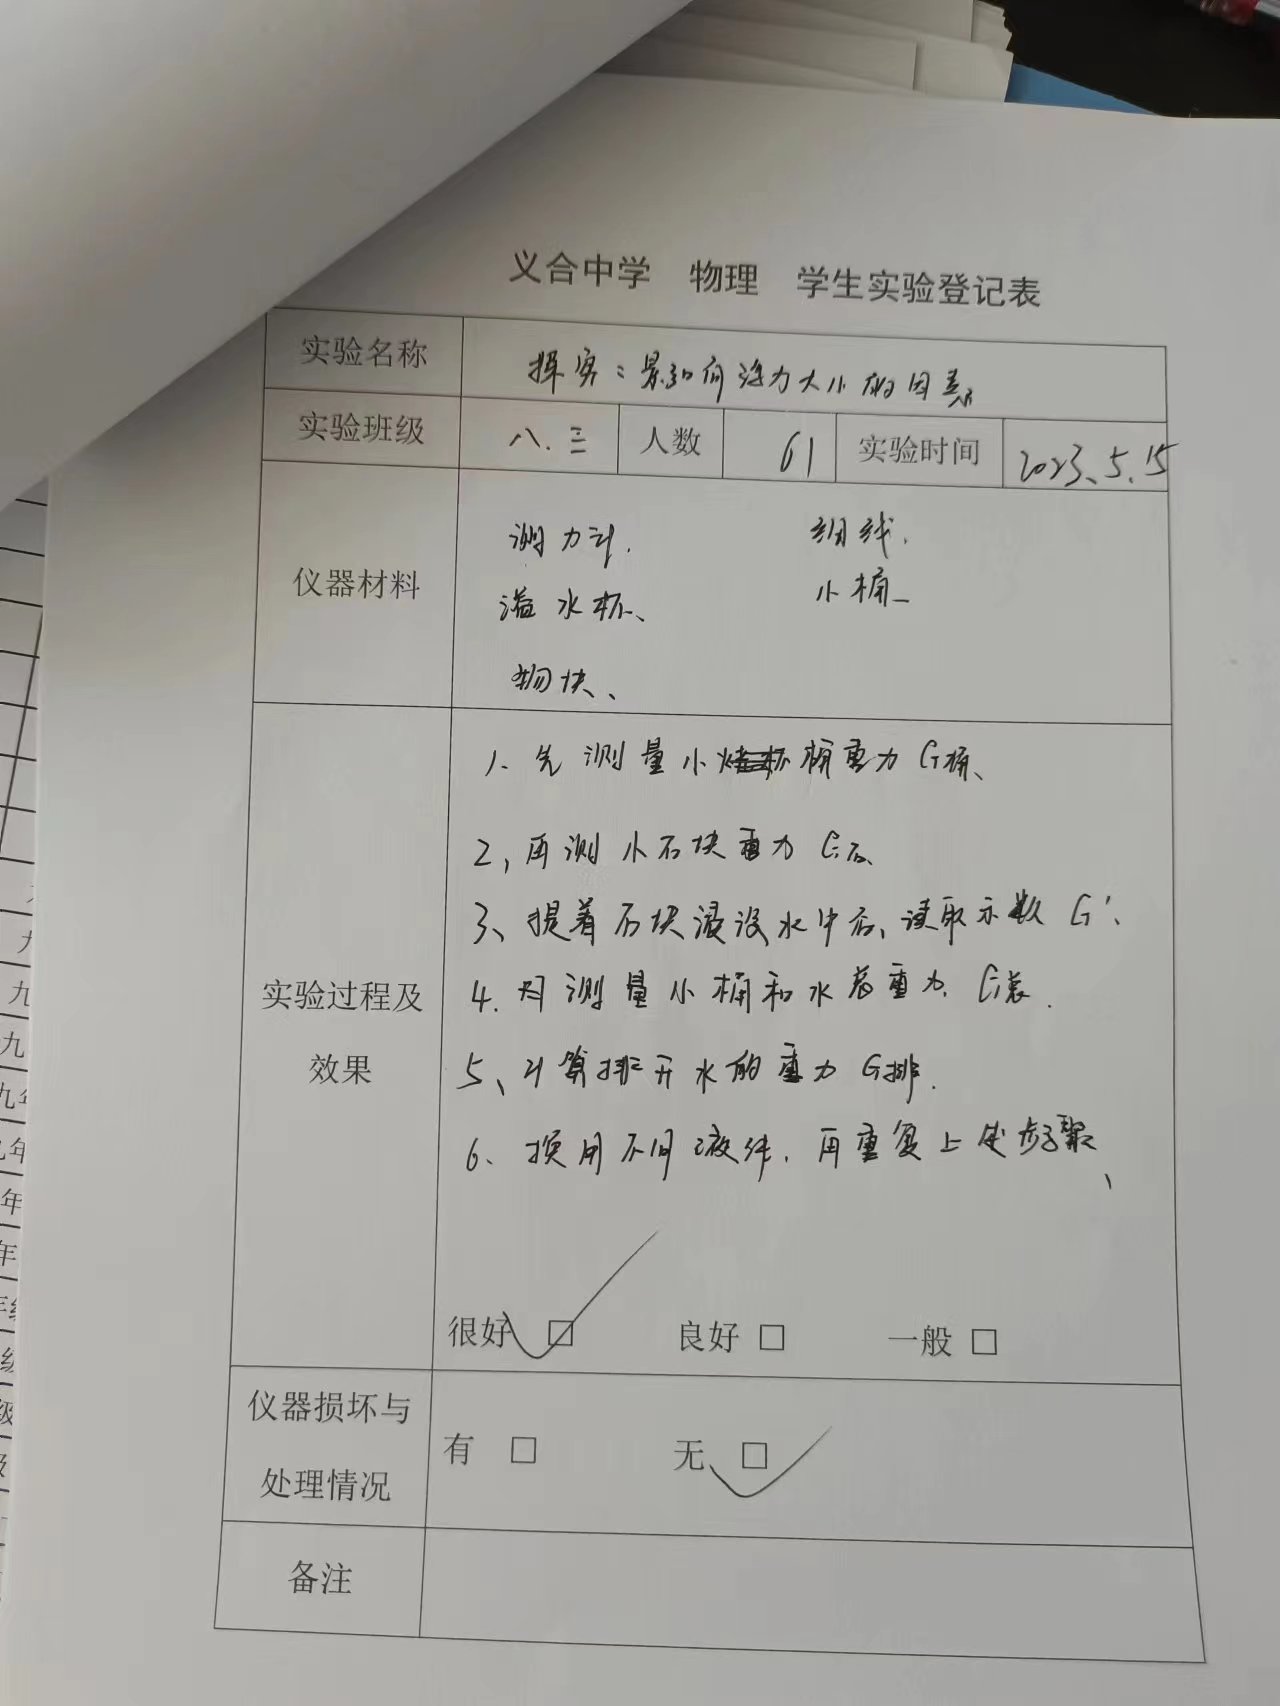 义合中学 物理 学生实验登记表
实验名称 探究：影响浮力大小的因素
实验班级 八.三 人数 61 实验时间 2023.5.15
仪器材料
测力计. 细线.
溢水杯、 小桶
物块、
实验过程及
效果
1. 先测量小桶重力G桶、
2, 再测小石块重力G石、
3、提着石块浸没水中后、读取示数G'、
4. 测量小桶和水总重力. G总.
5、计算排开水的重力G排.
6、换用不同液体. 再重复上述步骤、
很好 □ 良好 □ 一般 □
仪器损坏与
处理情况
有 □ 无 □
备注
九
九
九年
年
年
年
级
级